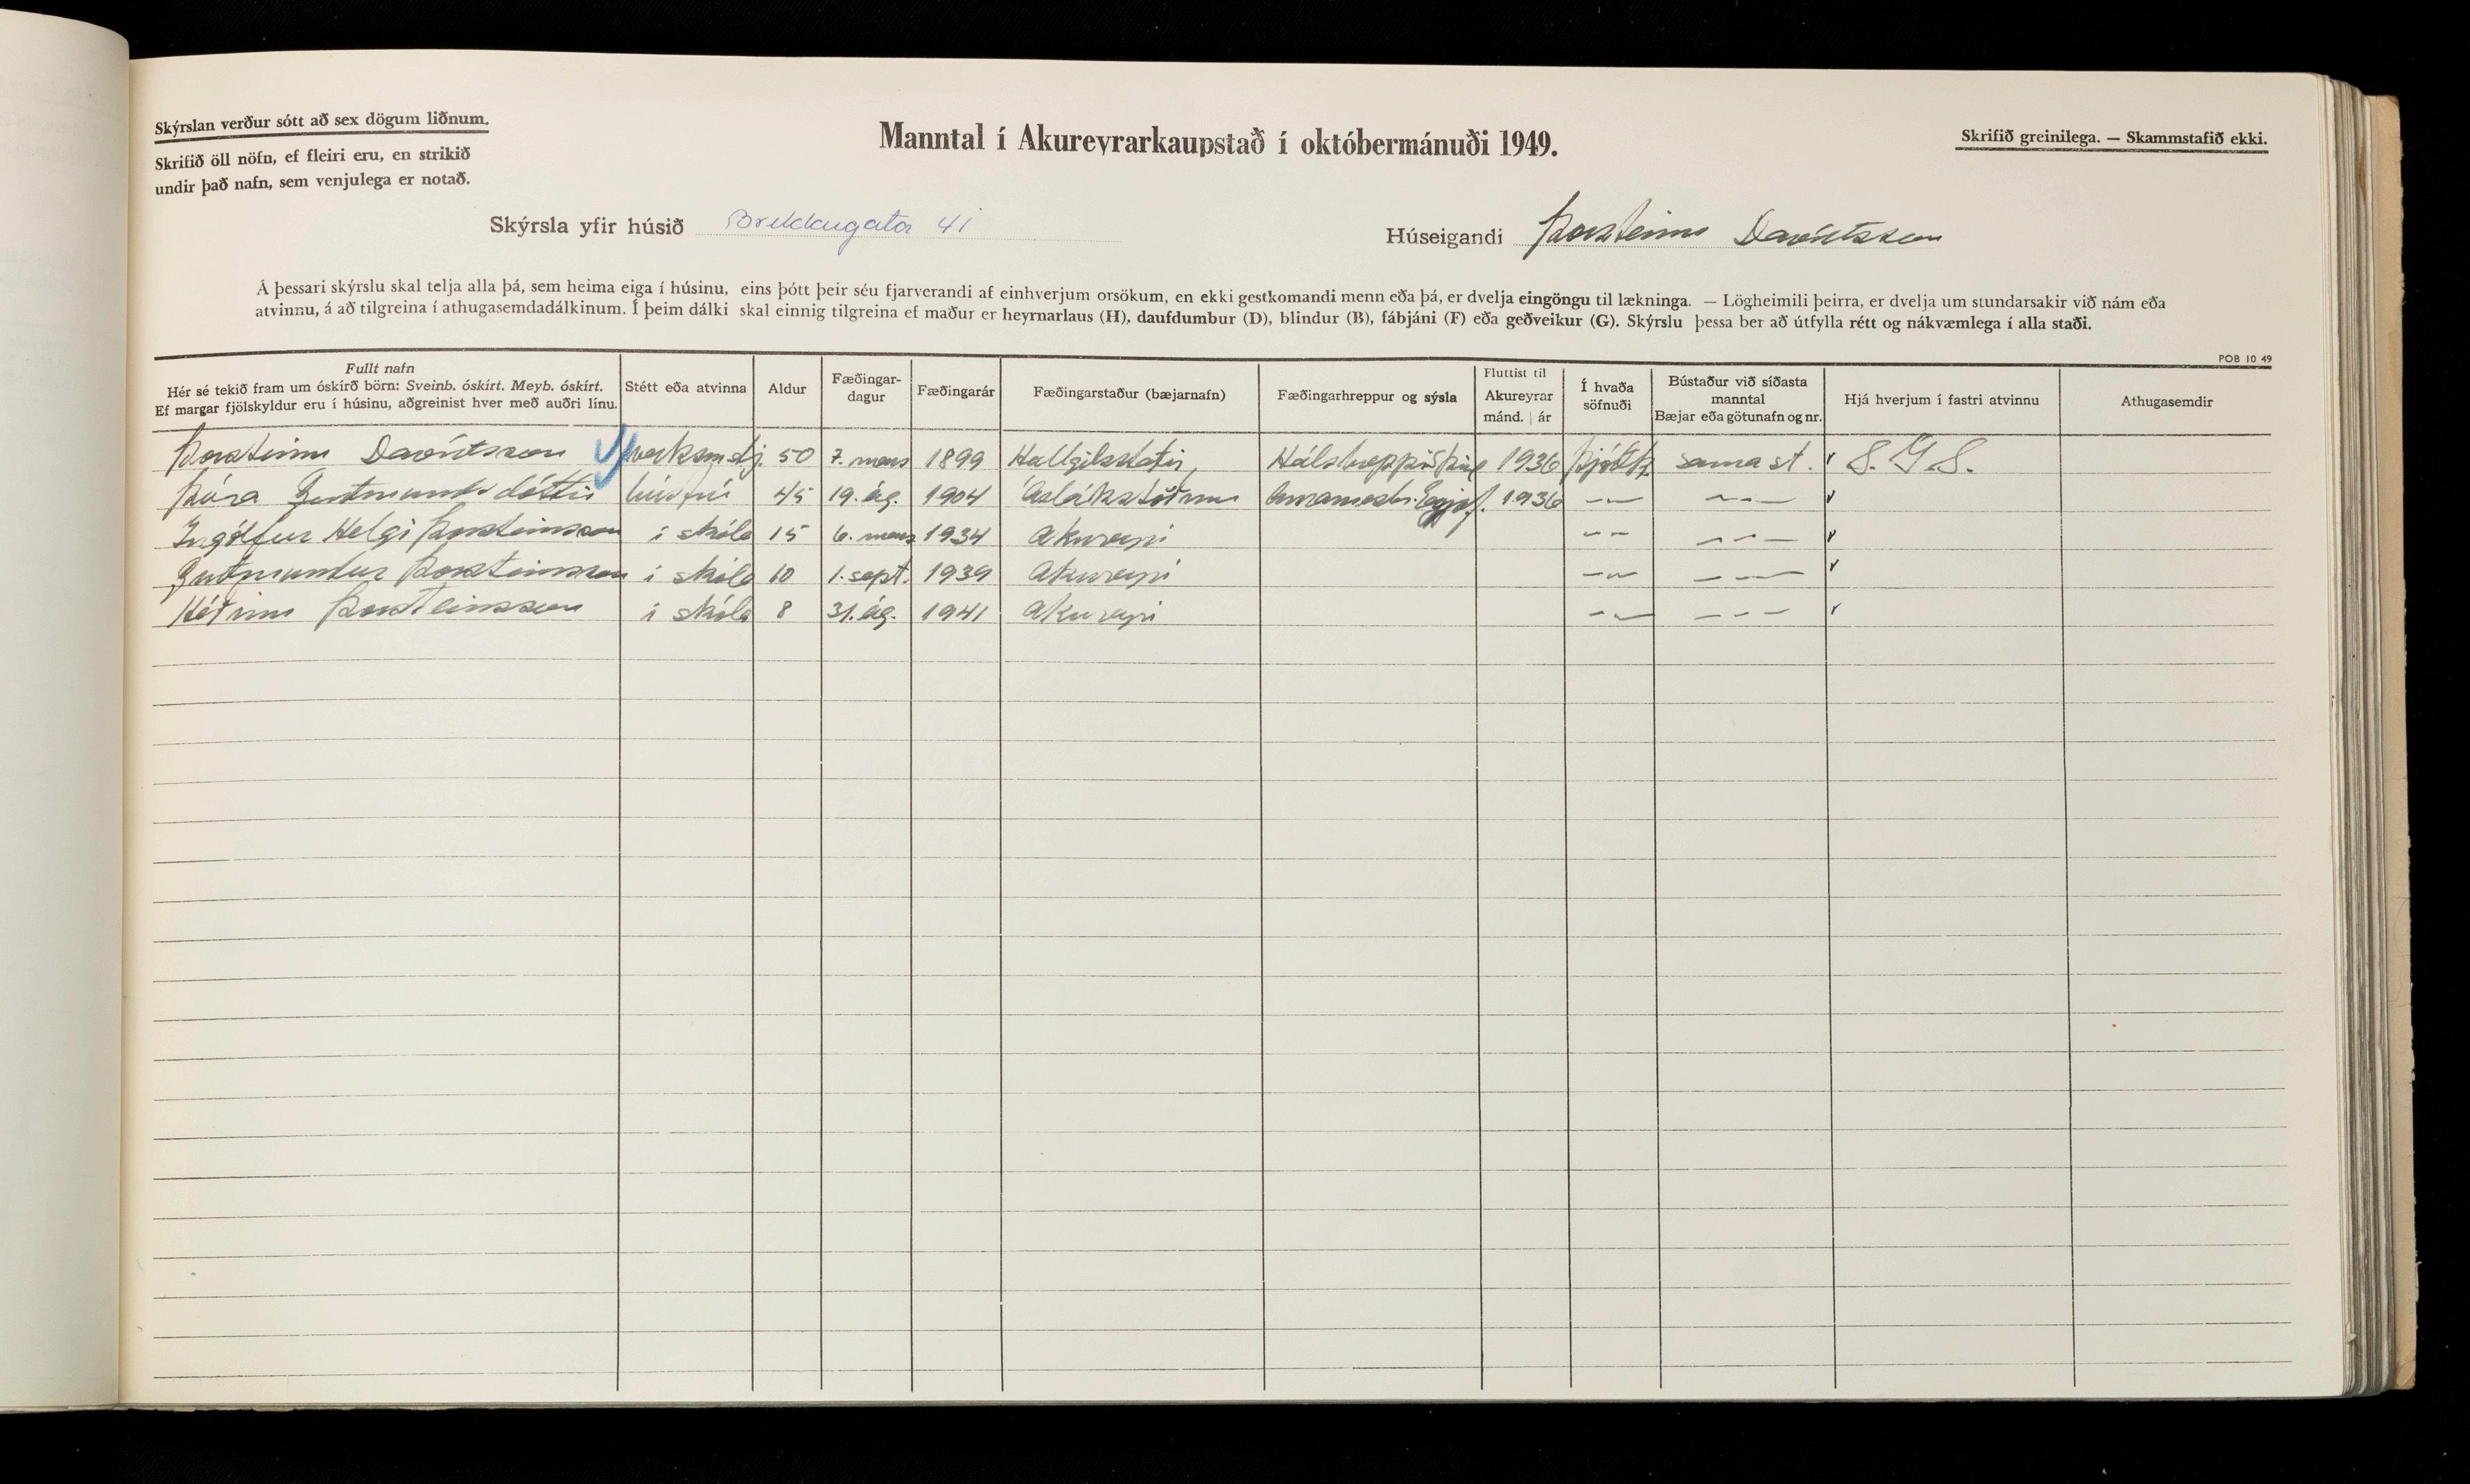 Skýrslan verður sótt að sex dögum liðnum.
Skrifið öll nöfn, ef fleiri eru, en strikið
undir það nafn, sem venjulega er notað.
Manntal í Akureyrarkaupstað í októbermánuði 1949.
Skrifið greinilega. — Skammstafið ekki.
Skýrsla yfir húsið Brekkugata 41
Húseigandi Þorsteinn Davíðsson
Á þessari skýrslu skal telja alla þá, sem heima eiga í húsinu, eins þótt þeir séu fjarverandi af einhverjum orsökum, en ekki gestkomandi menn eða þá, er dvelja eingöngu til lækninga. — Lögheimili þeirra, er dvelja um stundarsakir við nám eða
atvinnu, á að tilgreina í athugasemdadálkinum. Í þeim dálki skal einnig tilgreina ef maður er heyrnarlaus (H), daufdumbur (D), blindur (B), fábjáni (F) eða geðveikur (G). Skýrslu þessa ber að útfylla rétt og nákvæmlega í alla staði.
POB 10 49
Fullt nafn
Hér sé tekið fram um óskírð börn: Sveinb. óskírt. Meyb. óskírt.
Ef margar fjölskyldur eru í húsinu, aðgreinist hver með auðri línu.
Stétt eða atvinna
Aldur
Fæðingar-
dagur
Fæðingarár
Fæðingarstaður (bæjarnafn)
Fæðingarhreppur og sýsla
Fluttist til
Akureyrar
mánd. | ár
Í hvaða
söfnuði
Bústaður við síðasta
manntal
Bæjar eða götunafn og nr.
Hjá hverjum í fastri atvinnu
Athugasemdir
Þorsteinn Davíðsson verksmstj. 50 7. mars 1899 Hallgilsstaðir, Hálshreppi 1936 Þjóðk. sama st. S.Í.S.
Þóra Guðmundsdóttir húsfrú 45 19. ág. 1904 Ásláksstöðum Eyjaf. 1936 — —
Ingólfur Helgi Þorsteinsson í skóla 15 6. mars 1934 Akureyri — —
Guðmundur Þorsteinsson í skóla 10 1. sept. 1939 Akureyri — —
Héðinn Þorsteinsson í skóla 8 31. ág. 1941 Akureyri — —